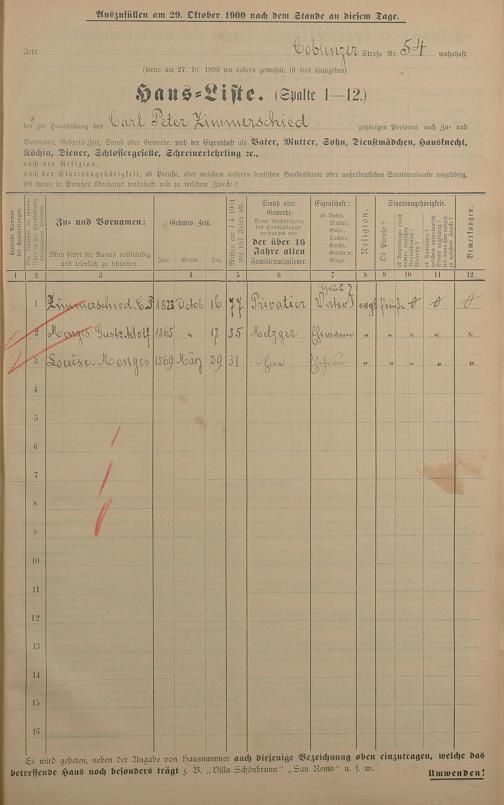 Auszufüllen am 29. Oktober 1900 nach dem Stande an diesem Tage.
Jetzt Coblenzer Straße Nr. 54 wohnhaft.
(wenn am 27. 10. 1899 wo anders gewohnt, ist dies anzugeben)
Haus-Liste. (Spalte 1—12.)
der zur Haushaltung des Carl Peter Zimmerschied gehörigen Personen nach Zu- und
Vornamen, Geburts-Zeit, Stand oder Gewerbe, nach der Eigenschaft als Vater, Mutter, Sohn, Dienstmädchen, Hausknecht,
Köchin, Diener, Schlossergeselle, Schreinerlehrling ꝛc.,
nach der Religion,
nach der Staatsangehörigkeit, ob Preuße, oder welchem anderen deutschen Bundesstaate oder außerdeutschen Staatsverbande angehörig,
seit wann in Preußen überhaupt wohnhaft und zu welchem Zwecke?
Zu- und Vornamen:
Man bittet die Namen vollständig
und leserlich zu schreiben.
Geburts-Zeit.
Jahr. Monat. Tag.
Stand oder
Gewerbe.
der über 16
Jahre alten
Familienmitglieder.
Eigenschaft:
ob Vater,
Mutter,
Sohn,
Tochter,
Knecht,
Geselle u.
Magd.
Religion.
Staatsangehörigkeit.
Ob Preuße?
Bemerkungen.
1 2 3 4 5 6 7 8 9 10 11 12
1 Zimmerschied, C. P. 1823 Octob 16 77 Privatier Vater evgl Preuße
2 Menges Gust. Adolf 1865 " 17 35 Metzger Ehemann " " " " "
3 Louise Menges 1869 März 29 31 Ohne Ehefrau " " " " "
4
5
6
7
8
9
10
11
12
13
14
15
16
Es wird gebeten, neben der Angabe von Hausnummer auch diejenige Bezeichnung oben einzutragen, welche das
betreffende Haus noch besonders trägt z. B. „Villa Schönbrunn" „San Remo" u. s. w. Umwenden!